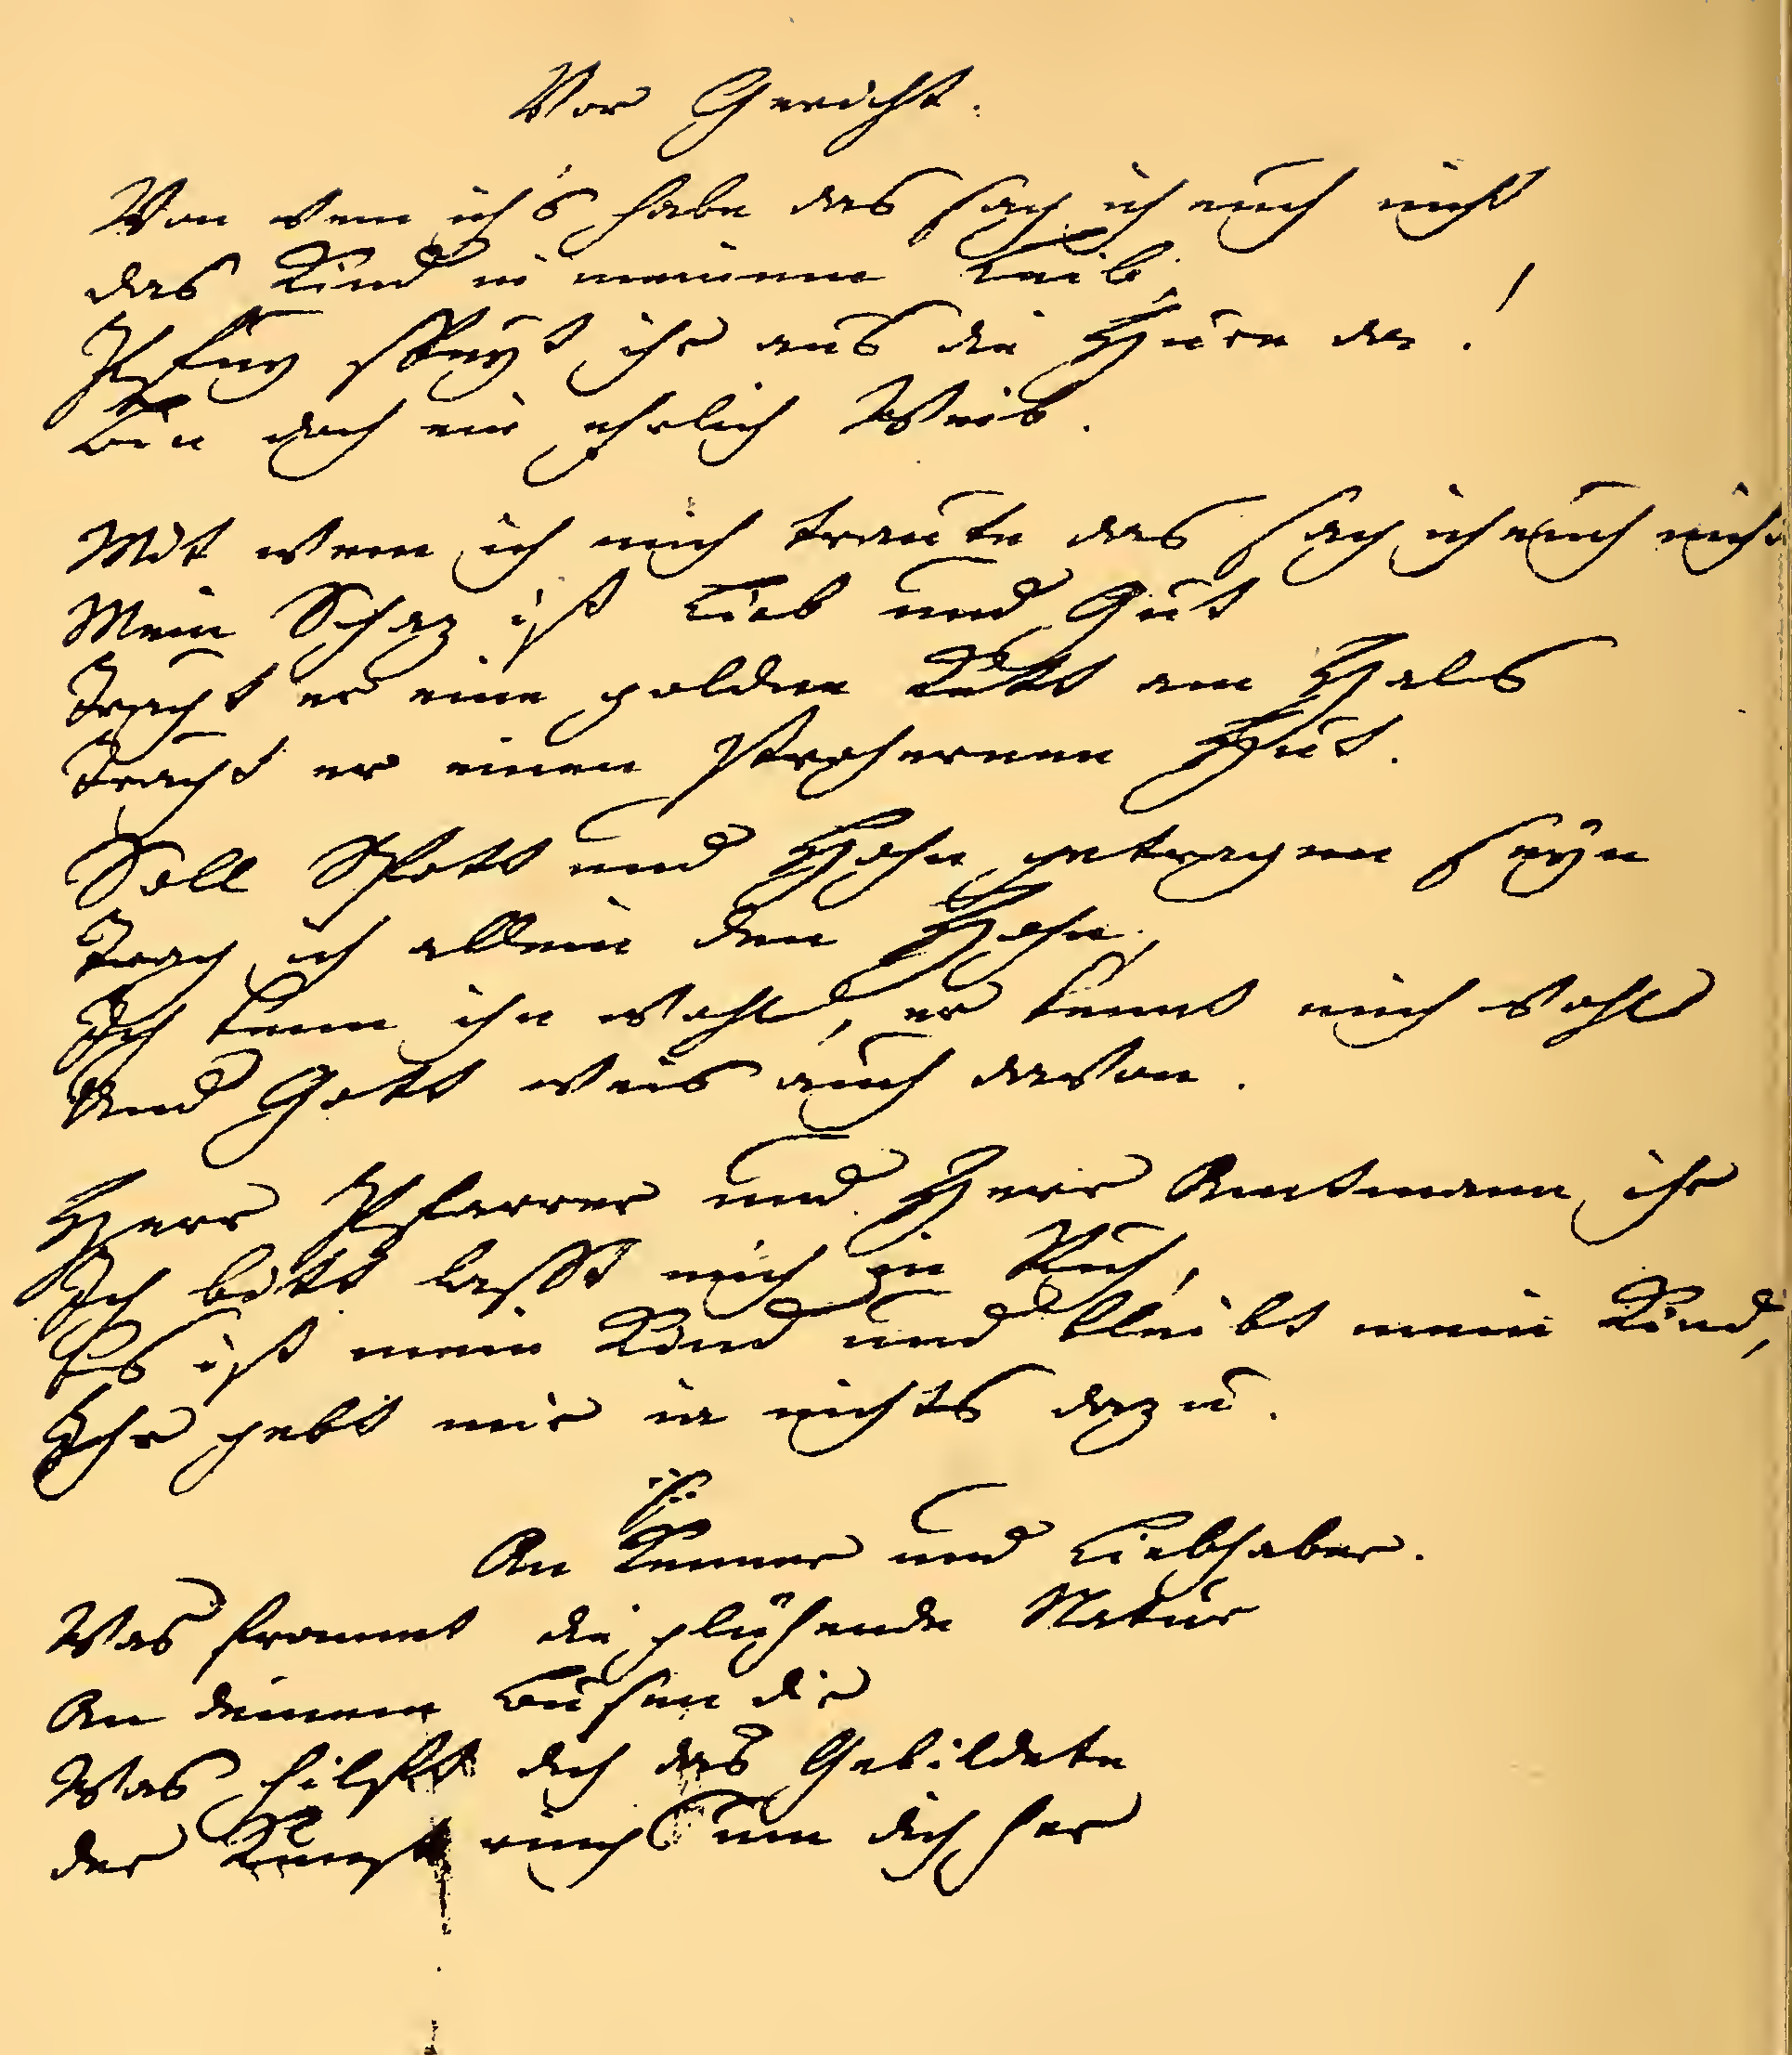 Vor Gericht.
Von wem ich's habe das sag ich euch nicht
das Kind in meinem Leib,
Pfuy speyt ihr aus die Hure da!
Bin doch ein ehrlich Weib.
Mit wem ich mich traute das sag ich euch nicht
Mein Schaz ist Lieb und Gut
Trägt er eine goldne Kett am Hals
Trägt er einen strohernen Hut.
Soll Spott und Hohn getragen seyn
Trag ich allein den Hohn,
Ich kenn ihn wohl, er kennt mich wohl
Und Gott weis auch davon.
Herr Pfarrer und Herr Amtmann ihr
Ich bitt lasst mich in Ruh,
Es ist mein Kind und bleibt mein Kind,
Ihr gebt mir ia nichts dazu.
An Kenner und Liebhaber.
Was frommt die glühende Natur
An deinem Busen dir
Was hilfft dich das Gebildete
der Kunst rings um dich her